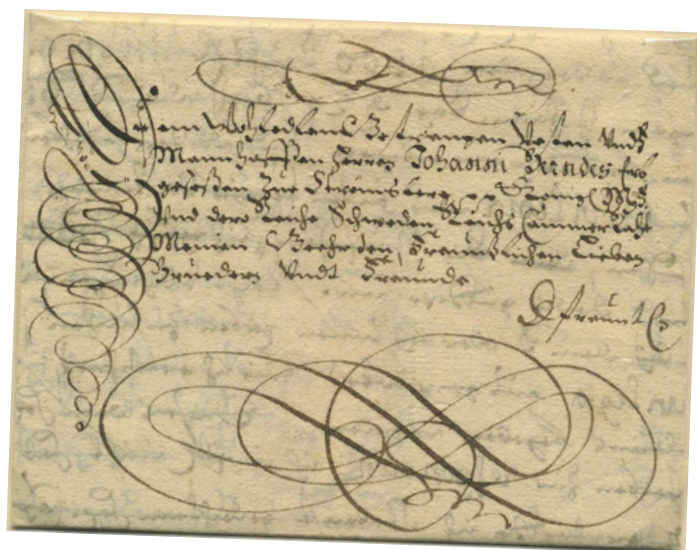 Dem WohlEdlen Gestrengen Vesten Undt
Mannhafften Herren Johann Berndes Erb
geseßen Zue Königl: May:
Und dero Reiche Schweden Reichs Cammerraht
Meinen Geehrden, Freundlichen Lieben
Brueders Undt Freunde